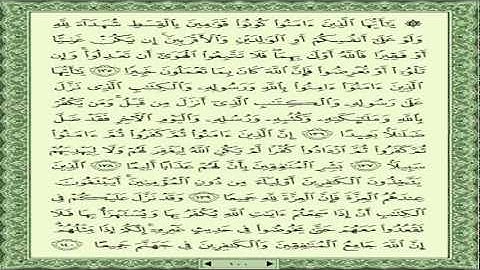 ۞ يَٰٓأَيُّهَا ٱلَّذِينَ ءَامَنُوا۟ كُونُوا۟ قَوَّٰمِينَ بِٱلْقِسْطِ شُهَدَآءَ لِلَّهِ
وَلَوْ عَلَىٰٓ أَنفُسِكُمْ أَوِ ٱلْوَٰلِدَيْنِ وَٱلْأَقْرَبِينَ إِن يَكُنْ غَنِيًّا
أَوْ فَقِيرًا فَٱللَّهُ أَوْلَىٰ بِهِمَا فَلَا تَتَّبِعُوا۟ ٱلْهَوَىٰٓ أَن تَعْدِلُوا۟ وَإِن
تَلْوُۥٓا۟ أَوْ تُعْرِضُوا۟ فَإِنَّ ٱللَّهَ كَانَ بِمَا تَعْمَلُونَ خَبِيرًا ١٣٥ يَٰٓأَيُّهَا
ٱلَّذِينَ ءَامَنُوٓا۟ ءَامِنُوا۟ بِٱللَّهِ وَرَسُولِهِۦ وَٱلْكِتَٰبِ ٱلَّذِى نَزَّلَ
عَلَىٰ رَسُولِهِۦ وَٱلْكِتَٰبِ ٱلَّذِىٓ أَنزَلَ مِن قَبْلُ وَمَن يَكْفُرْ
بِٱللَّهِ وَمَلَٰٓئِكَتِهِۦ وَكُتُبِهِۦ وَرُسُلِهِۦ وَٱلْيَوْمِ ٱلْءَاخِرِ فَقَدْ ضَلَّ
ضَلَٰلًۢا بَعِيدًا ١٣٦ إِنَّ ٱلَّذِينَ ءَامَنُوا۟ ثُمَّ كَفَرُوا۟ ثُمَّ ءَامَنُوا۟
ثُمَّ كَفَرُوا۟ ثُمَّ ٱزْدَادُوا۟ كُفْرًا لَّمْ يَكُنِ ٱللَّهُ لِيَغْفِرَ لَهُمْ وَلَا لِيَهْدِيَهُمْ
سَبِيلًۢا ١٣٧ بَشِّرِ ٱلْمُنَٰفِقِينَ بِأَنَّ لَهُمْ عَذَابًا أَلِيمًا ١٣٨ ٱلَّذِينَ
يَتَّخِذُونَ ٱلْكَٰفِرِينَ أَوْلِيَآءَ مِن دُونِ ٱلْمُؤْمِنِينَ أَيَبْتَغُونَ
عِندَهُمُ ٱلْعِزَّةَ فَإِنَّ ٱلْعِزَّةَ لِلَّهِ جَمِيعًا ١٣٩ وَقَدْ نَزَّلَ عَلَيْكُمْ فِى
ٱلْكِتَٰبِ أَنْ إِذَا سَمِعْتُمْ ءَايَٰتِ ٱللَّهِ يُكْفَرُ بِهَا وَيُسْتَهْزَأُ بِهَا فَلَا
تَقْعُدُوا۟ مَعَهُمْ حَتَّىٰ يَخُوضُوا۟ فِى حَدِيثٍ غَيْرِهِۦٓ إِنَّكُمْ إِذًا مِّثْلُهُمْ
إِنَّ ٱللَّهَ جَامِعُ ٱلْمُنَٰفِقِينَ وَٱلْكَٰفِرِينَ فِى جَهَنَّمَ جَمِيعًا ١٤٠
١٠٠